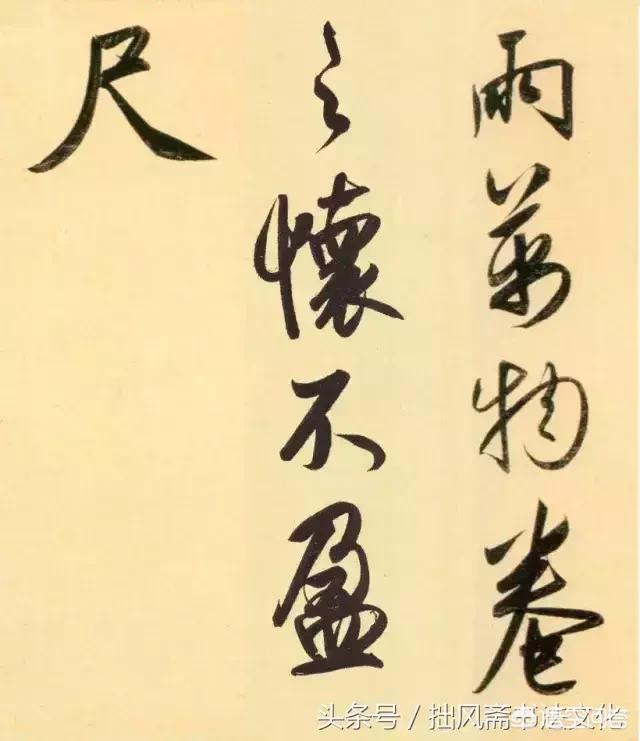 雨萬物卷
之懷不盈
尺
头条号／拙风斋书法文化